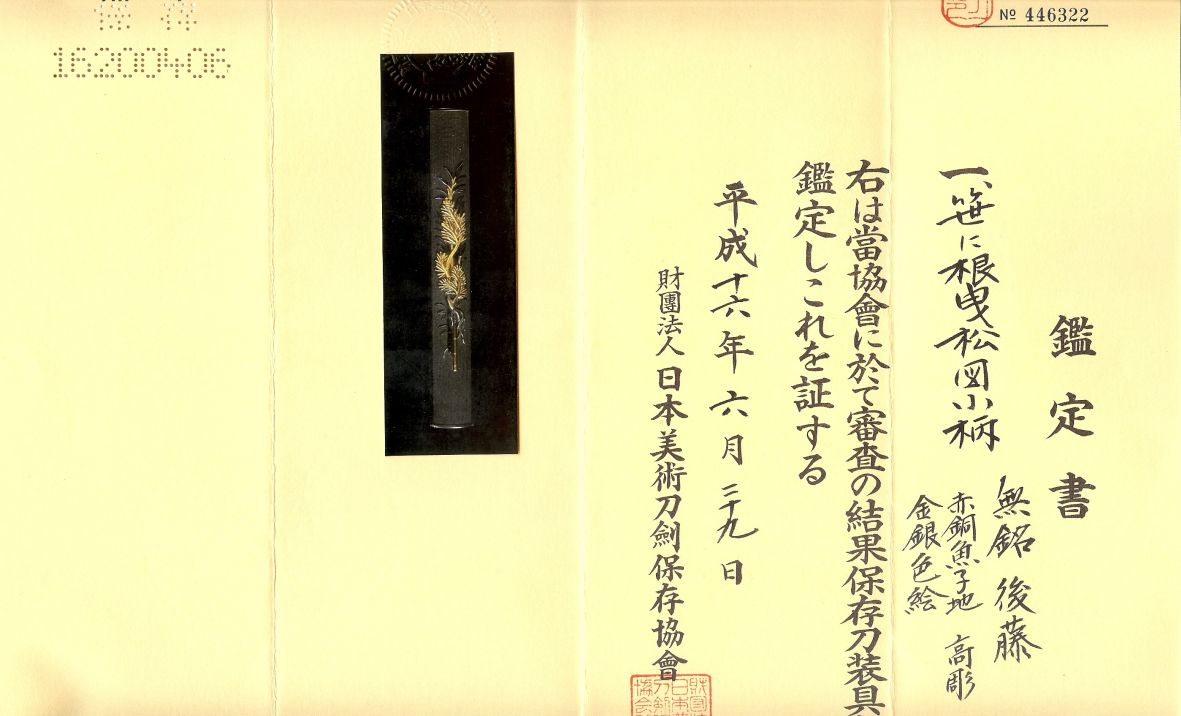 № 446322
鑑定書
一、笹に根曳松図小柄
無銘 後藤
赤銅魚子地 高彫
金銀色絵
右は當協會に於て審査の結果保存刀装具
鑑定しこれを証する
平成十六年六月二十九日
財團法人日本美術刀劍保存協會
16200406